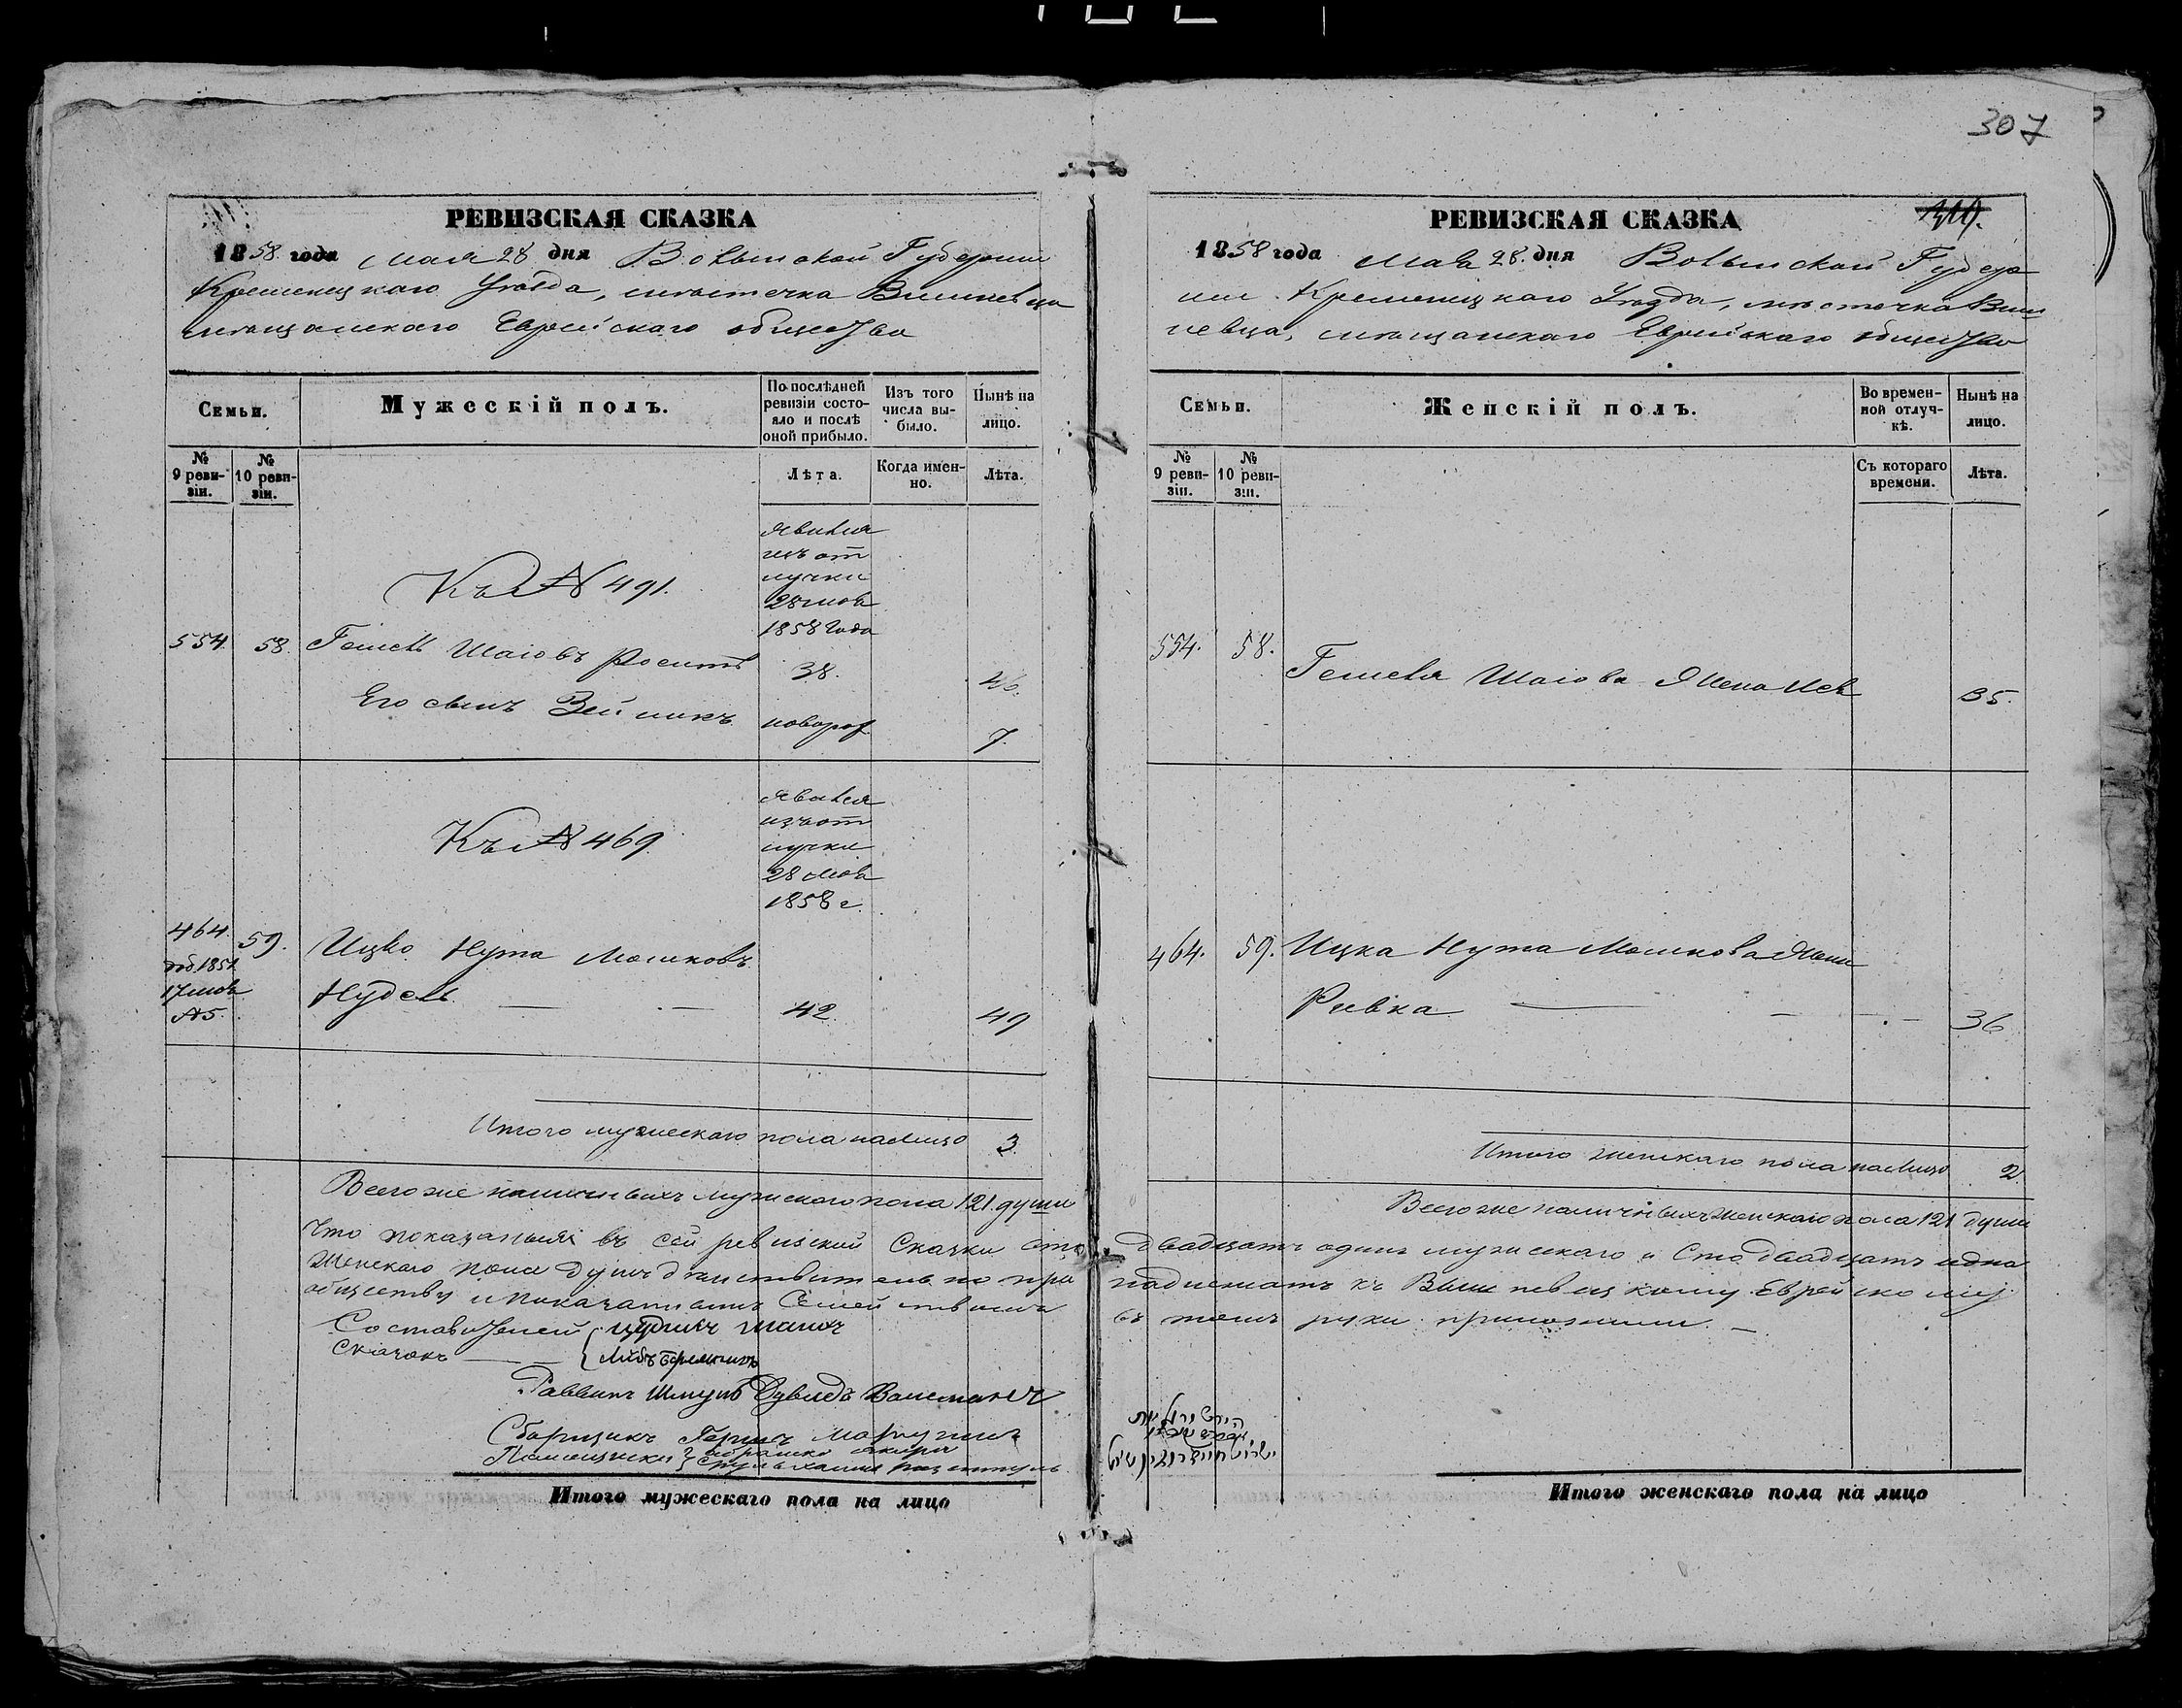 307
РЕВИЗСКАЯ СКАЗКА
1858 года мая 28 дня Волынской Губернии
Кременецкаго Уезда, местечка Вишневца
мещанскаго Еврейскаго общества
Семьи.
Мужескій полъ.
По послѣдней ревизіи состояло и послѣ оной прибыло.
Изъ того числа выбыло.
Нынѣ на лицо.
№ 9 ревизіи.
№ 10 ревизіи.
Лѣта.
Когда именно.
Лѣта.
явился
изъ от
лучки
28 мая
1858 года
Къ № 491.
554. 58. Гешель Шаіовъ 38. 46.
Его сынъ Зейликъ новорож 7.
явился
изъ от
лучки
28 мая
1858 г.
Къ № 469
464. 59. Ицко Нута Мошковъ
доб. 1851
17 мая
№ 5.
Нудель 42. 49
Итого мужескаго пола налицо 3.
Всего же наличныхъ мужскаго пола 121 души
Что показанныя въ сей ревизской Сказки сто
Женскаго пола душъ действительно при
обществу и показаніамъ Семей
Составителей
Сказокъ
Раввинъ Шмуль Дувидъ Вайсманъ
Сборщикъ Гершъ
Помощники
Итого мужескаго пола на лицо
РЕВИЗСКАЯ СКАЗКА
1858 года мая 28 дня Волынской Губер
ніи Кременецкаго Уезда, местечка Виш
невца, мещанскаго Еврейскаго общества
Семьи.
Женскій полъ.
Во временной отлучкѣ.
Нынѣ на лицо.
№ 9 ревизіи.
№ 10 ревизіи.
Съ котораго времени.
Лѣта.
554. 58. Гешеля Шаіова жена 35.
464. 59. Ицка Нута Мошкова жена
Ривка 36
Итого женскаго пола налицо 2.
Всего же наличныхъ женскаго пола 121 души
двадцать одинъ мужескаго и Сто двадцать одна
надлежатъ къ Вишневецкому Еврейскому
въ томъ руки приложили.
Итого женскаго пола на лицо